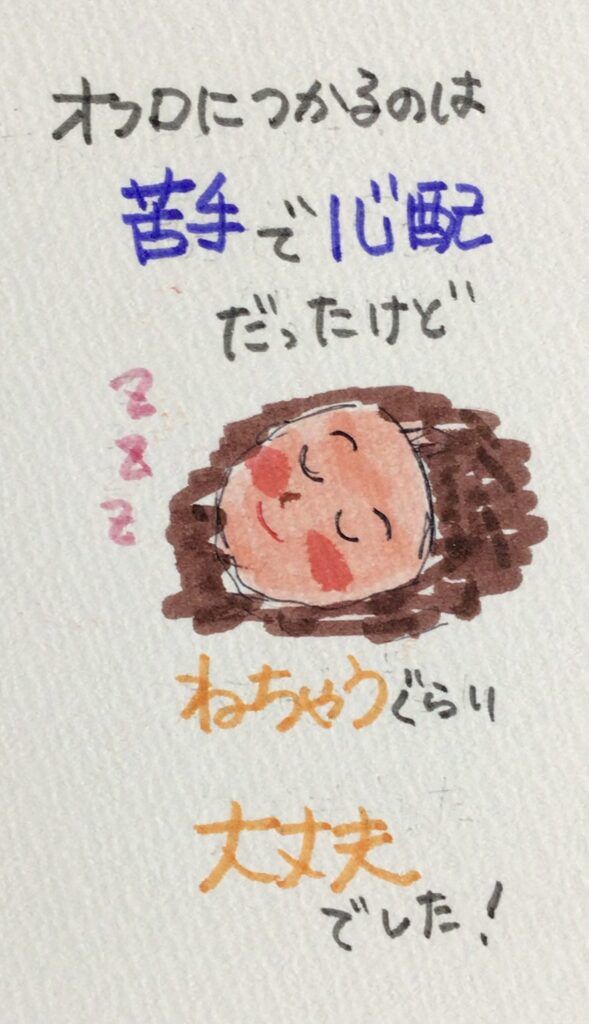 オフロにつかるのは
苦手で心配
だったけど
Z
Z
Z
ねちゃうぐらい
大丈夫
でした!